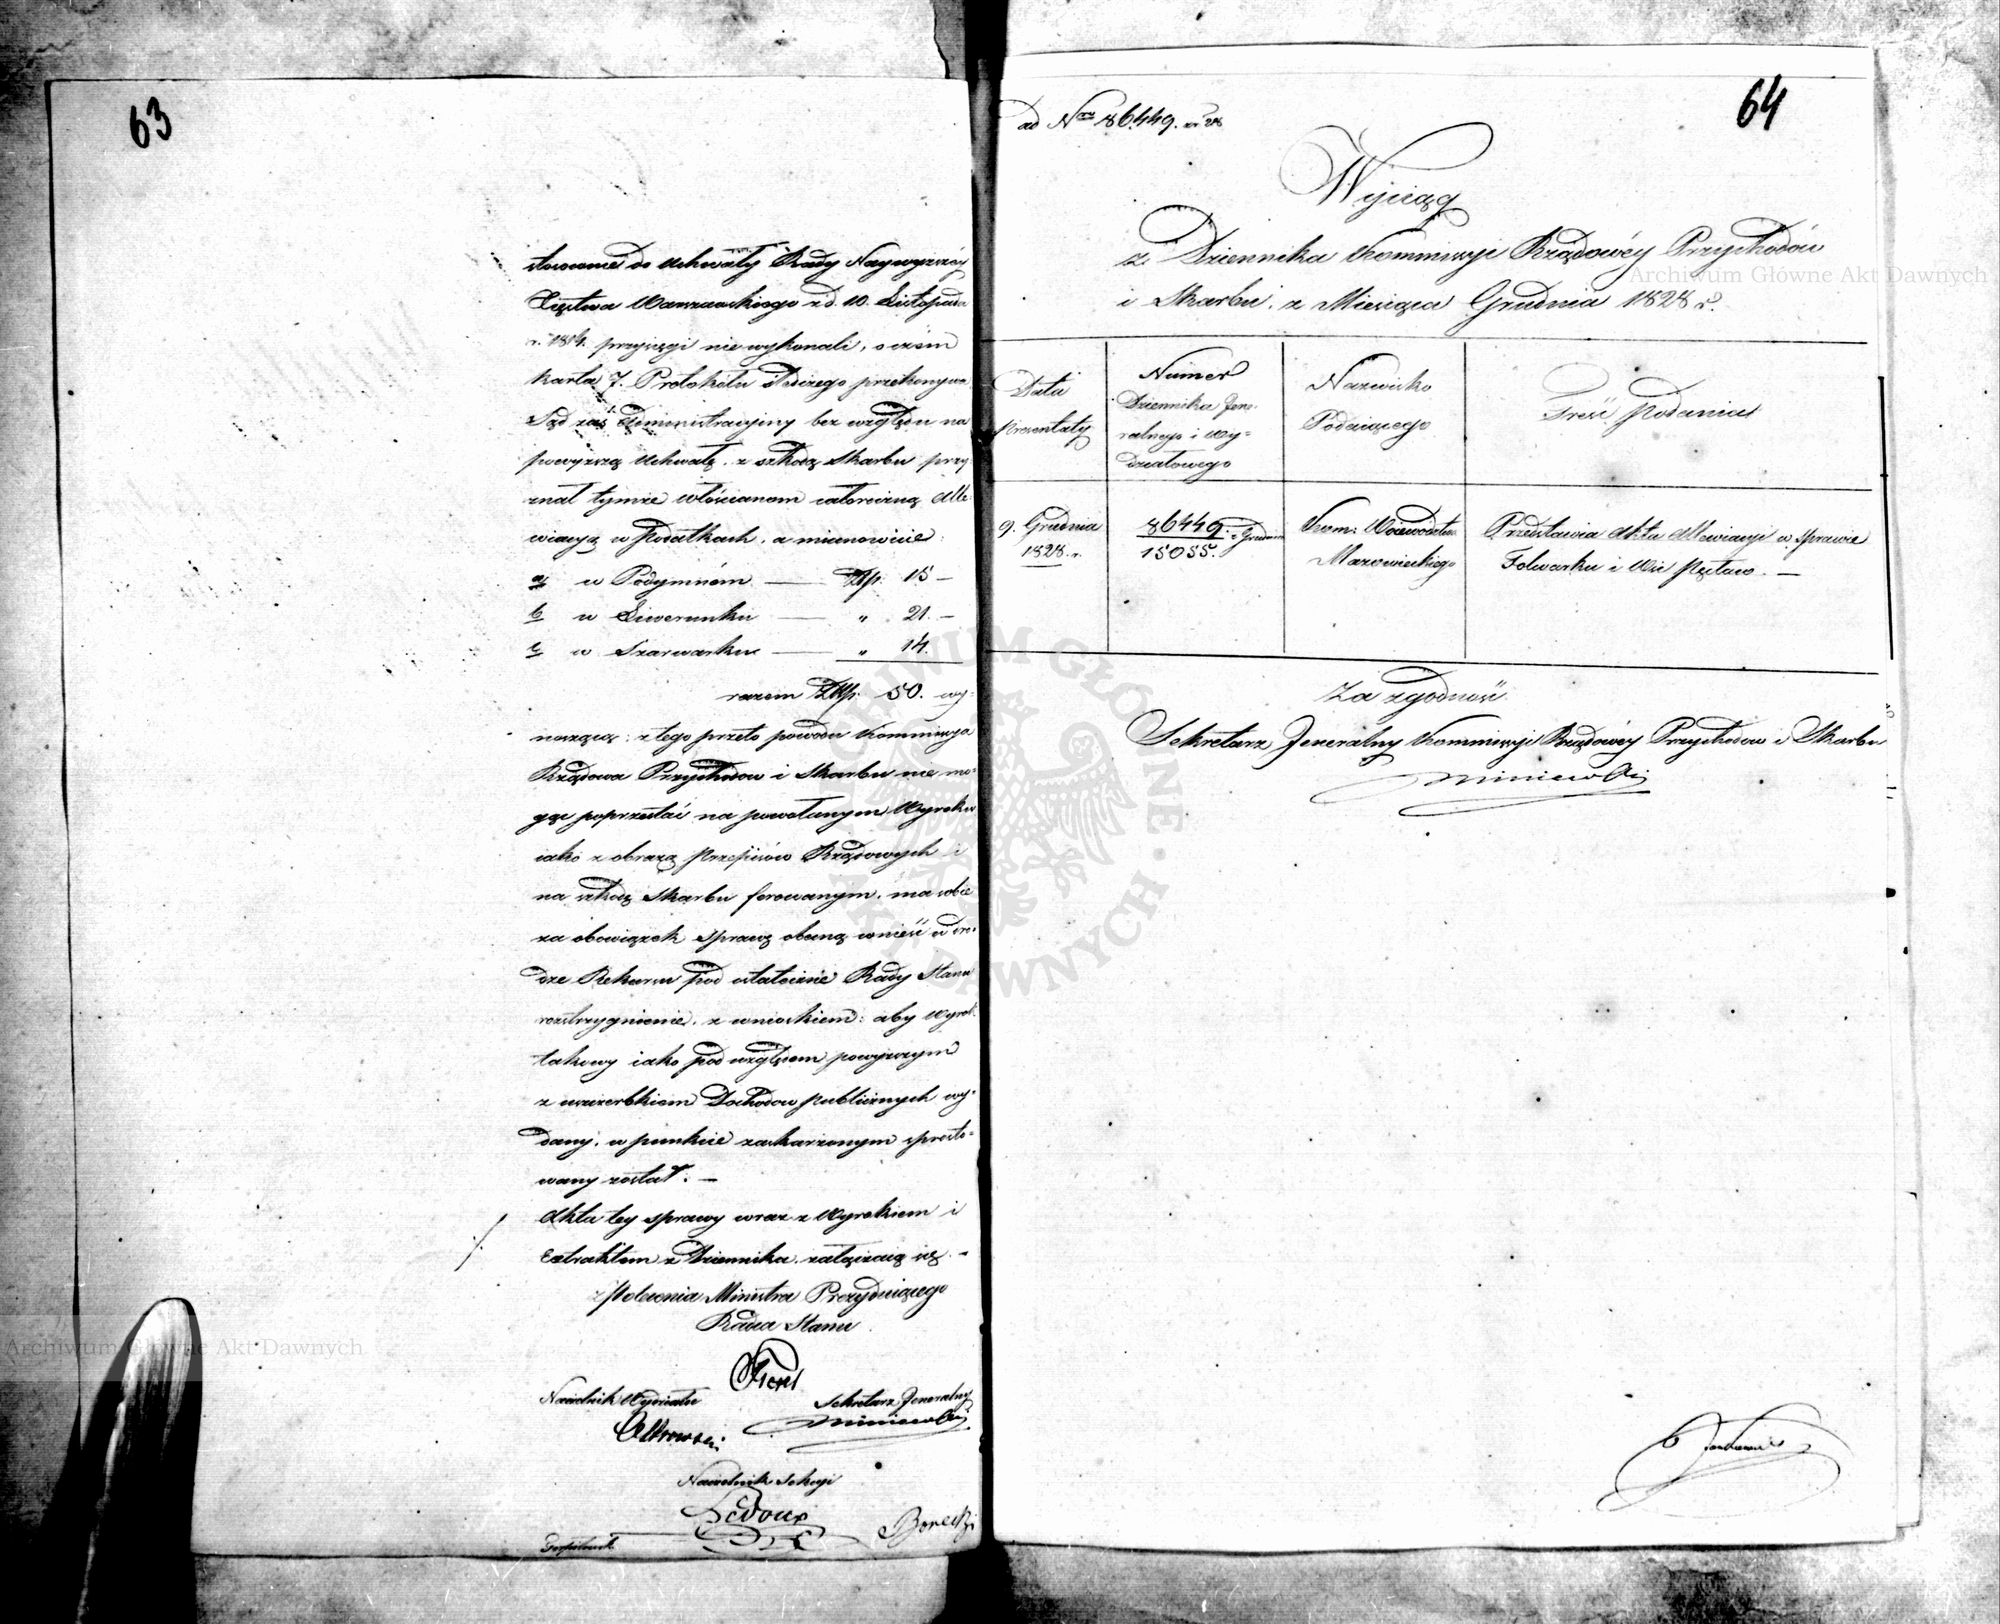 63
stosownie do Uchwały Rady Naywyższey
Xięstwa Warszawskiego z d. 10. Listopada
r. 1814. przysięgi nie wykonali, o czém
karta 7. Protokółu śledczego przekonywa
Sąd zaś Administracyiny bez względu na
powyższą Uchwałę, z szkodą Skarbu przy-
znał tymże włościanom całoroczną Alle-
wiacyą w Podatkach, a mianowicie:
a, w Podymném — Złtp. 15 —
b, w Liwerunku — " 21. —
c, w Szarwarku — " 14.
razem Złtp. 50. wy-
noszącą: z tego przeto powodu Kommissya
Rządowa Przychodow i Skarbu nie mo-
gąc poprzestać na powołanym Wyroku
iako z obrazą Przepisów Rządowych i
na szkodę Skarbu ferowanym, ma sobie
za obowiązek sprawę obecną wnieść w dro-
dze Rekursu pod ostateczne Rady Stanu
rozstrzygnienie, z wnioskiem: aby Wyrok
takowy iako pod względem powyższym
z uszczerbkiem Dochodow publicznych wy-
dany, w punkcie zaskarżonym sprosto-
wany został. —
Akta tey sprawy wraz z Wyrokiem i
Extraktem z Dziennika, załączaią się. —
z Polecenia Ministra Prezyduiącego
Radca Stanu
Naczelnik Wydziału Sekretarz Jeneralny
Naczelnik Sekcyi
Ledoux
64
ad Nrum 86449. 28
Wyciąg
z Dziennika Kommissyi Rządowéy Przychodów
i Skarbu, z Miesiąca Grudnia 1828 r.
Data Prezentaty
Numer Dziennika Jene-
ralnego i Wy-
działowego
Nazwisko Podaiącego
Treść podania
9. Grudnia 1828. r.
86449. 15055. Grudnia
Kom: Woiewodztwa Mazowieckiego
Przedstawia Akta Allewiacyi w sprawie
Folwarku i Wsi
Za zgodność
Sekretarz Jeneralny Kommissyi Rządowéy Przychodow i Skarbu
Archiwum Główne Akt Dawnych
Archiwum Główne Akt Dawnych
ARCHIWUM GŁÓWNE AKT DAWNYCH